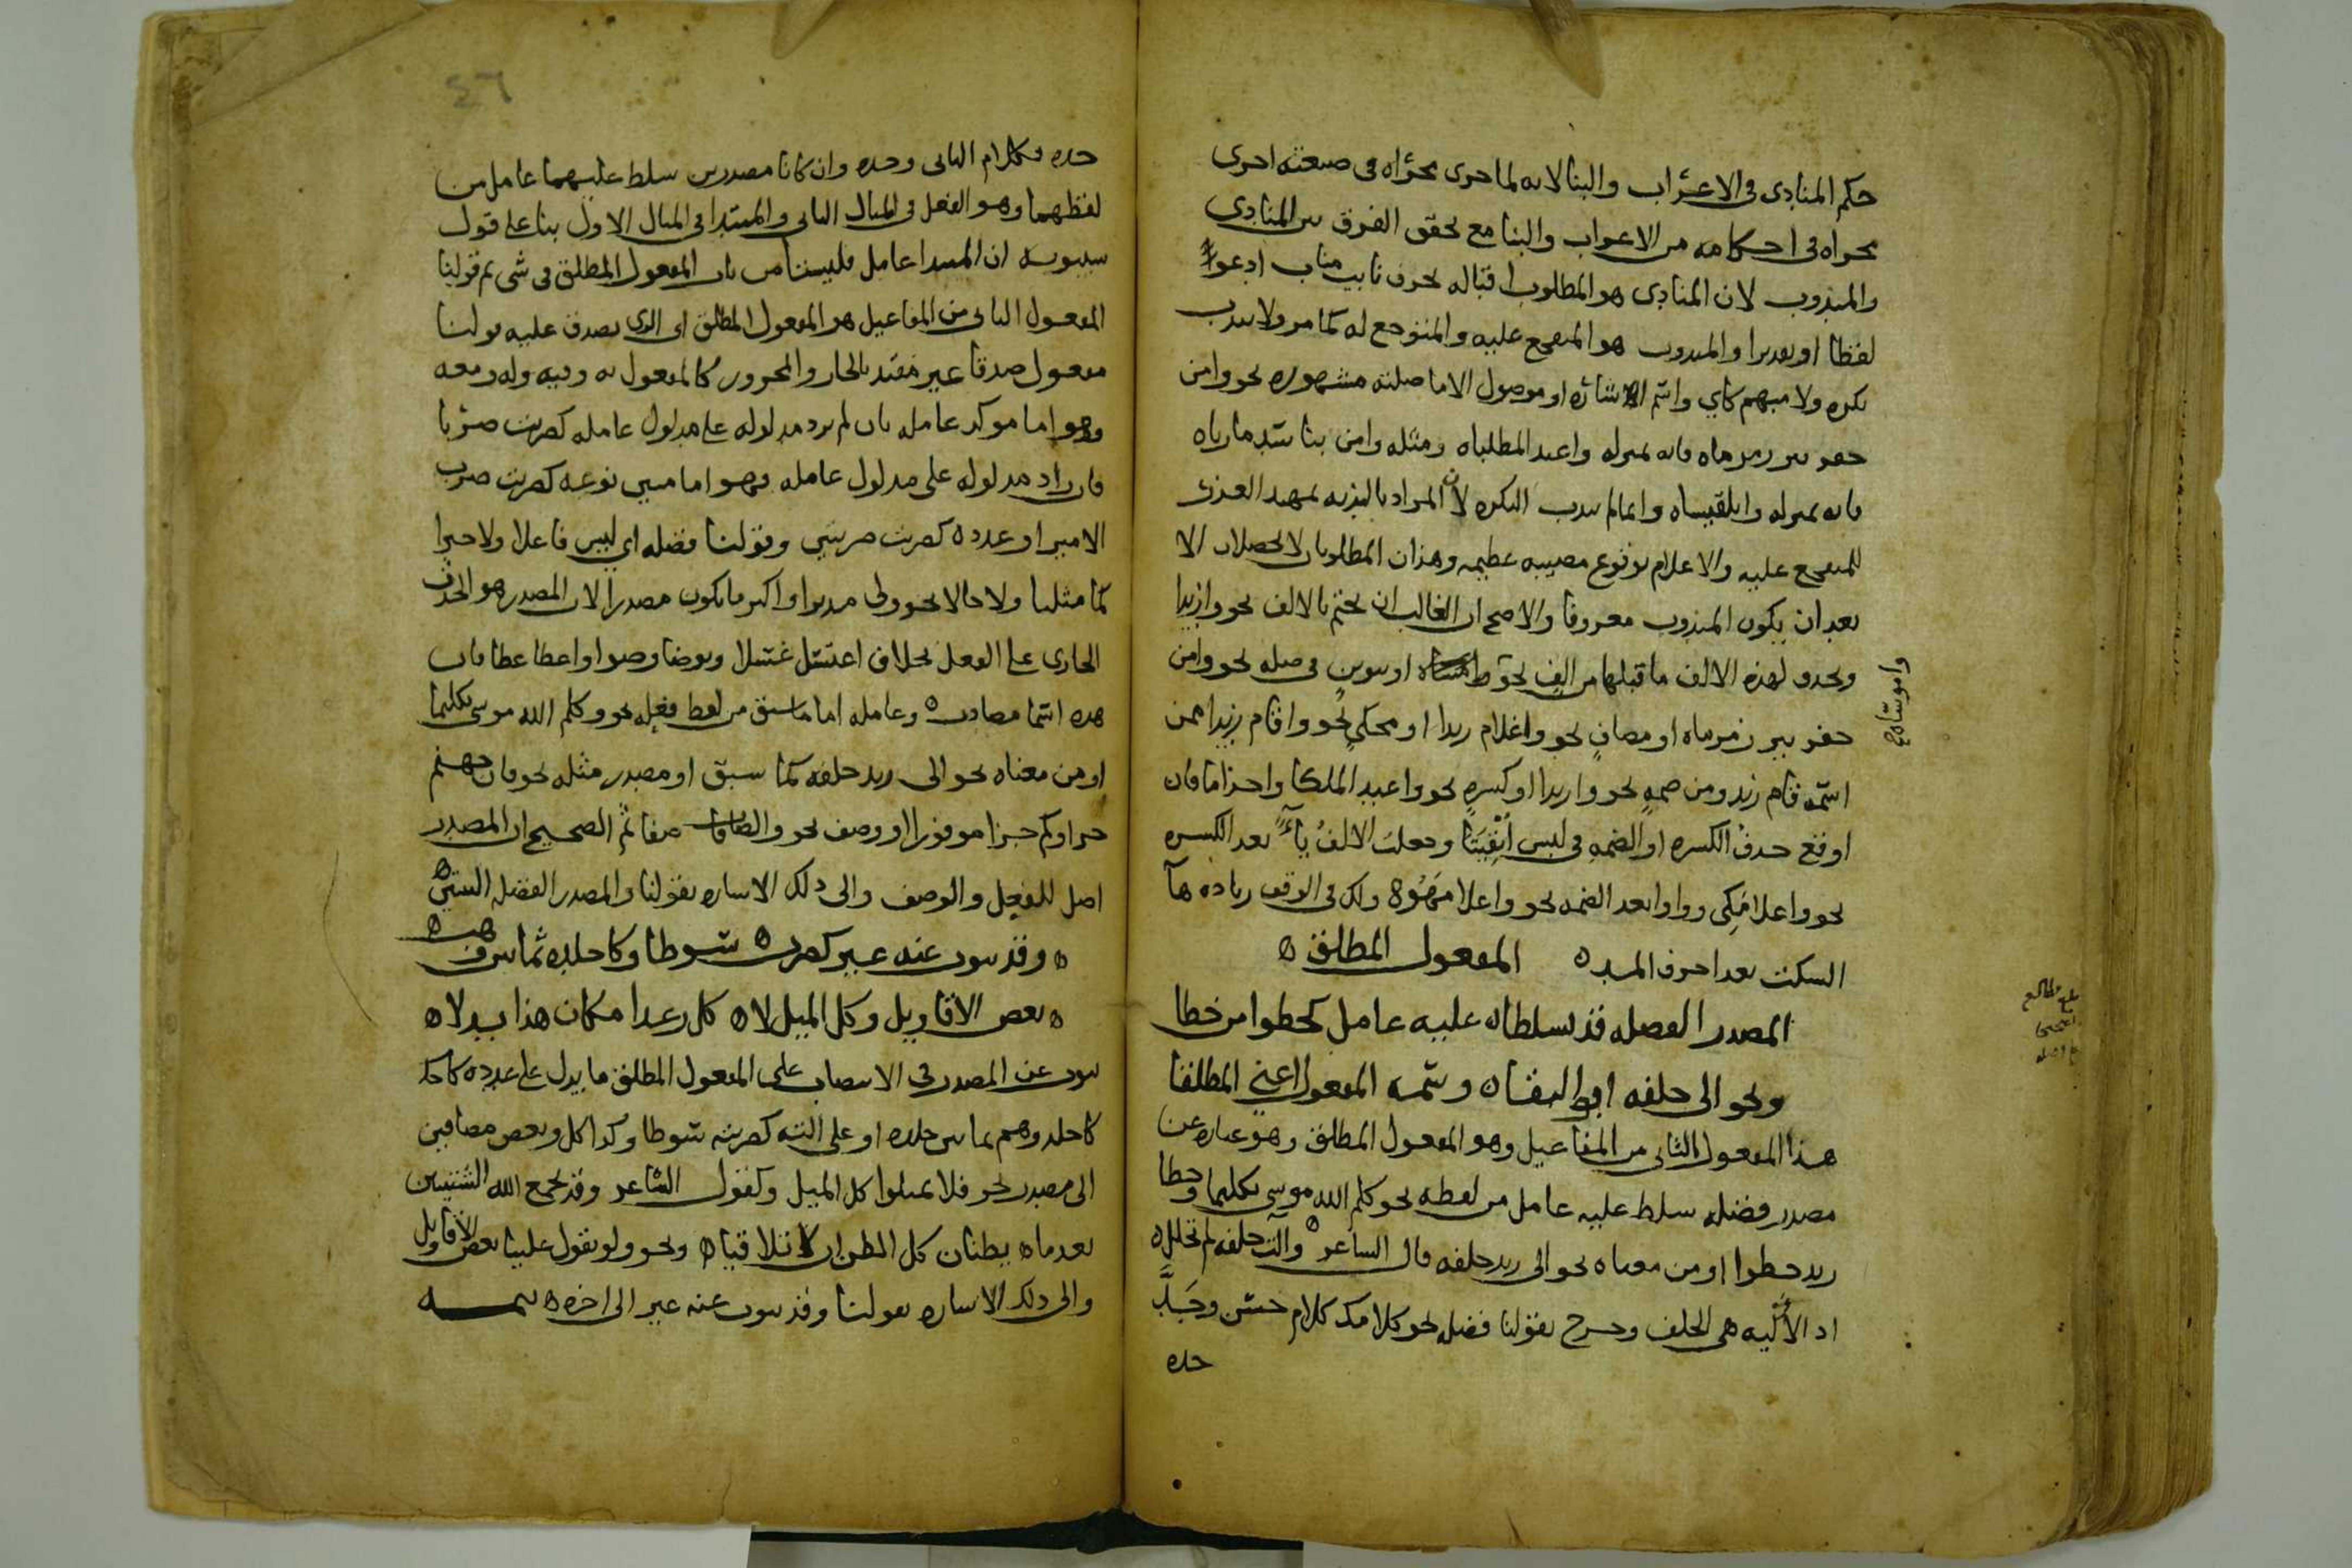 حكم المنادى فى الاعراب والبنا لانه لما جرى مجراه فى صيغته اجرى
مجراه فى احكامه من الاعراب والبنا مع تحقق الفرق بين المنادى
والمندوب لان المنادى هو المطلوب اقباله بحرف نايب مناب ادعوا
لفظا او تقديرا والمندوب هو المتفجع عليه والمتوجع له كما مر ولا يندب
نكره ولا مبهم كاي واسم الاشاره او موصول الا ما صلته مشهوره نحو وامن
حفر بير زمزماه فانه بمنزله واعبد المطلباه ومثله وامن بنا سد مارباه
فانه بمنزله وابلقيساه وانما لم يندب النكره لان المراد بالندبه تمهيد العذر
للمتفجع عليه والاعلام بوقوع مصيبه عظيمه وهذان المطلوبان لا يحصلان الا
بعد ان يكون المندوب معروفا والاصح ان الغالب ان يختم بالالف نحو وازيدا
ويحذف لهذه الالف ما قبلها من الف نحو او تنوين فى صله نحو وامن
واموساه صح
حفر بير زمزماه او مضاف نحو واغلام زيدا او محكى نحو واقام زيدا من
اسمه قام زيد ومن ضمه نحو وازيدا او كسره نحو واعبد الملكا واحذاما فان
اوقع حذف الكسره او الضمه فى لبس ابقيتا وجعلت الالف ياء بعد الكسره
نحو واغلامكى وواوا بعد الضمه نحو واغلامهوه ولك فى الوقف زياده هآ
السكت بعد احرف المد ه المفعول المطلق ه
المصدر الفضله قد تسلطا ه عليه عامل كخطوا من خطا
ونحو الى حلفه ه وسمه المفعول اعنى المطلقا
هذا المفعول الثانى من المفاعيل وهو المفعول المطلق وهو عباره عن
مصدر فضله سلط عليه عامل من لفظه نحو كلم الله موسى تكليما وخطا
زيد خطوا او من معناه نحو الى زيد حلفه قال الشاعر ه وآلت حلفه لم تحلل ه
اذ الأليه هى الحلف وخرج بقولنا فضله نحو كلامك كلام حسن وجد
جده
٤٦
جده فكلام الثانى وجده وان كانا مصدرين سلط عليهما عامل من
لفظهما وهو الفعل فى المثال الثانى والمبتدا فى المثال الاول بنا على قول
سيبويه ان المبتدا عامل فليستا من باب المفعول المطلق فى شى ثم قولنا
المفعول الثانى من المفاعيل هو المفعول المطلق اى الذى يصدق عليه قولنا
مفعول صدقا غير مقيد بالجار والمجرور كالمفعول به وفيه وله ومعه
وهو اما موكد عامله بان لم يزد مدلوله على مدلول عامله كضربت ضربا
فان زاد مدلوله على مدلول عامله فهو اما مبين نوعه كضربت ضرب
الامير او عدده كضربت ضربتين وقولنا فضله اي ليس فاعلا ولا خبرا
كما مثلنا ولا حالا نحو ولى مدبرا واكثر ما يكون مصدرا لان المصدر هو الحدث
الجارى على الفعل بخلاف اغتسل غسلا وتوضا وضوا واعطا عطا فان
هذه اسما مصادر ه وعامله اما ما سبق من لفظ فعله نحو وكلم الله موسى تكليما
او من معناه نحو الى زيد حلفه كما سبق او مصدر مثله نحو فان جهنم
جزاوكم جزا موفورا او وصف نحو والصافات صفا ثم الصحيح ان المصدر
اصل للفعل والوصف والى ذلك الاشاره بقولنا والمصدر الفضله البيتين
ه وقد ينوب عنه غير كضرب ه سوطا وكاجلده ثمانين
ه بعض الاقاويل وكل الميل لا ه كل رغدا مكان هذا بدلا ه
ينوب عن المصدر فى الانتصاب على المفعول المطلق ما يدل على عدده كاجلد
كاجلدوهم ثمانين جلده او على الته كضربته سوطا وكذا كل وبعض مضافين
الى مصدر نحو فلا تميلوا كل الميل وكقول الشاعر وقد يجمع الله الشتيتين
بعد ما ه يظنان كل الظن ان لا تلاقيا ه ونحو ولو تقول علينا بعض الاقاويل
والى ذلك الاشاره بقولنا وقد ينوب عنه غير الى اخره ه